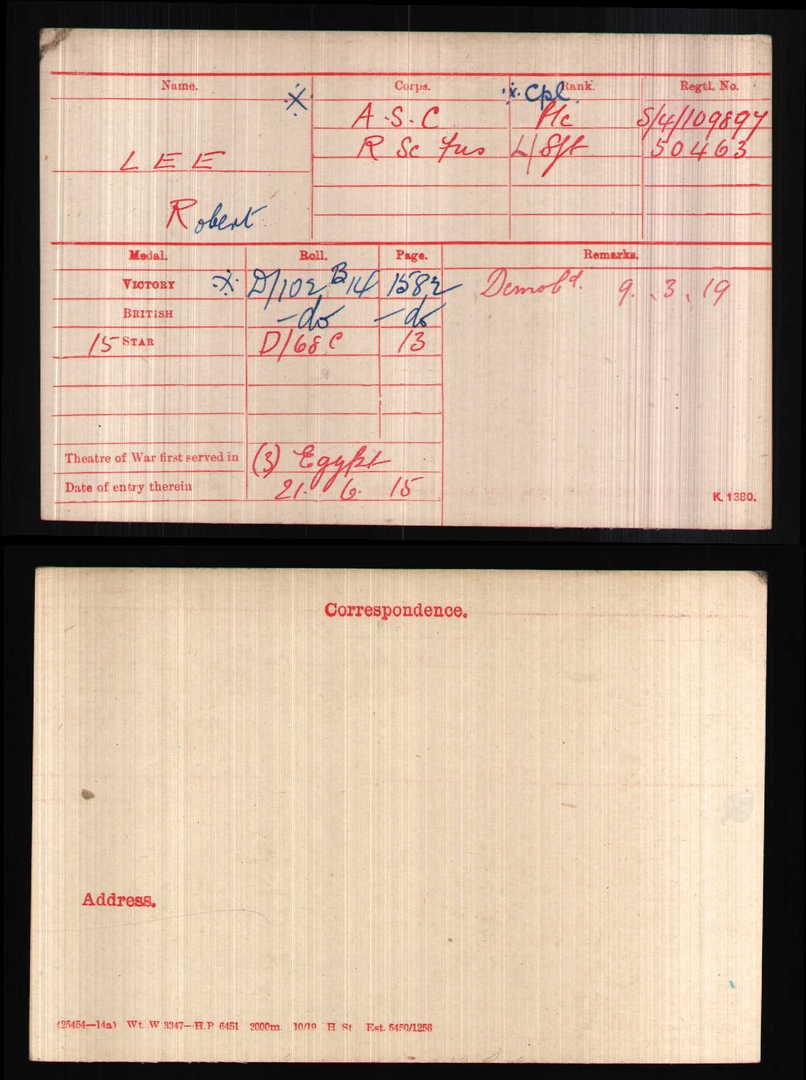 Name. Corps. Rank. Regtl. No.
※ ※ Cpl.
A.S.C Pte S/4/109897
LEE R Sc Fus L/Sjt 50463
Robert
Medal. Roll. Page. Remarks.
VICTORY ※ D/102 B14 1582 Demobd. 9.3.19
BRITISH -do -do
15 STAR D/68C 13
Theatre of War first served in (3) Egypt
Date of entry therein 21. 6. 15
K. 1380.
Correspondence.
Address.
(25454—14a) Wt. W 3347—H.P. 6451 2000m. 10/19 H St Est. 5450/1256